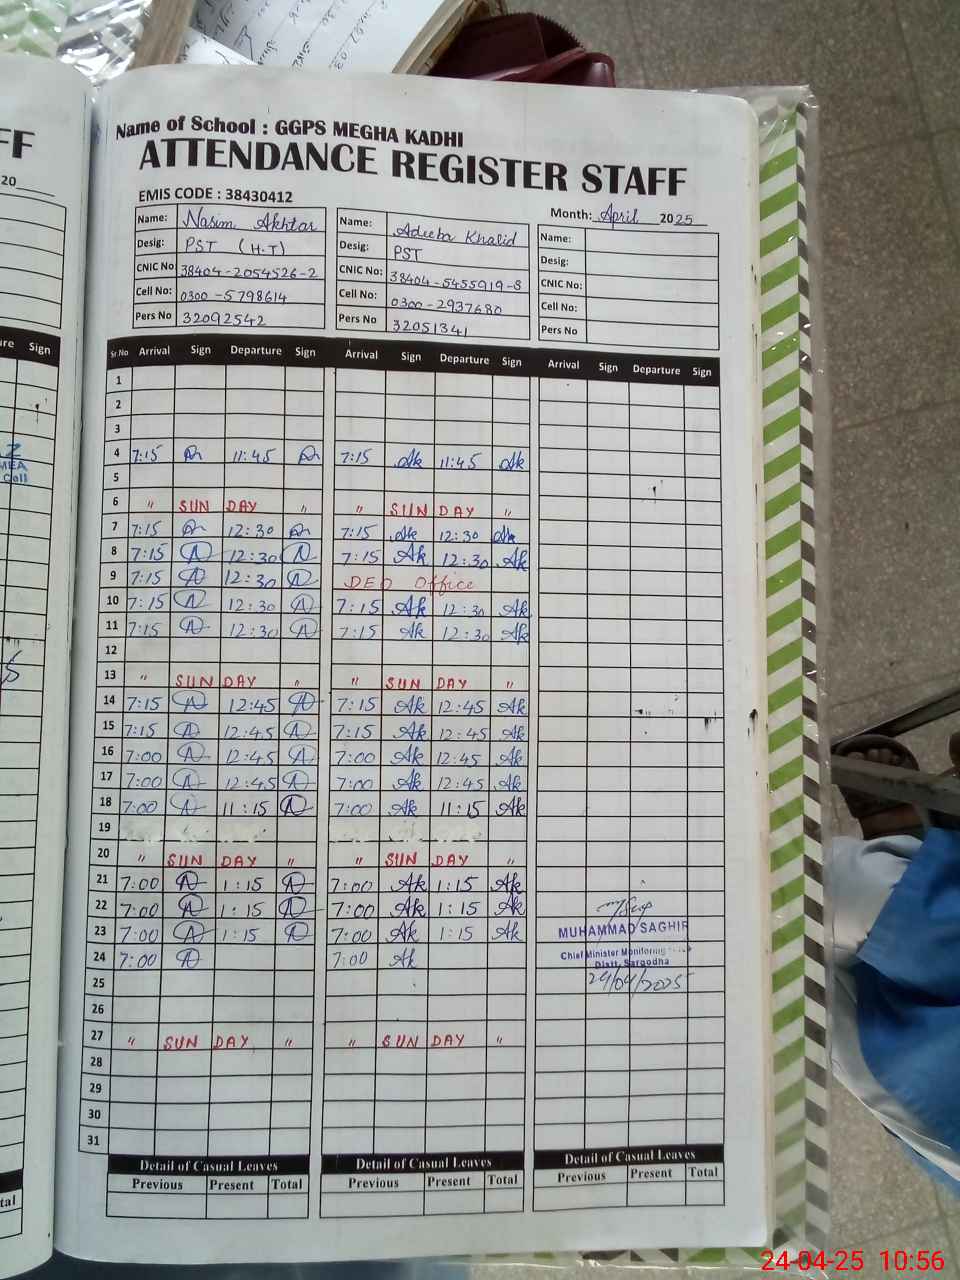 Name of School : GGPS MEGHA KADHI
ATTENDANCE REGISTER STAFF
EMIS CODE : 38430412
Month: April 2025
Name: Nasim Akhtar
Desig: PST (H.T)
CNIC No: 38404-2054526-2
Cell No: 0300-5798614
Pers No 32092542
Name: Adeeba Khalid
Desig: PST
CNIC No: 38404-5455919-8
Cell No: 0300-2937680
Pers No 32051341
Name:
Desig:
CNIC No:
Cell No:
Pers No
Sr.No Arrival Sign Departure Sign Arrival Sign Departure Sign Arrival Sign Departure Sign
1
2
3
4 7:15 11:45 7:15 Ak 11:45 Ak
5
6 " SUN DAY " " SUN DAY "
7 7:15 12:30 7:15 Ak 12:30 Ak
8 7:15 12:30 7:15 Ak 12:30 Ak
9 7:15 12:30 DEO Office
10 7:15 12:30 7:15 Ak 12:30 Ak
11 7:15 12:30 7:15 Ak 12:30 Ak
12
13 " SUN DAY " " SUN DAY "
14 7:15 12:45 7:15 Ak 12:45 Ak
15 7:15 12:45 7:15 Ak 12:45 Ak
16 7:00 12:45 7:00 Ak 12:45 Ak
17 7:00 12:45 7:00 Ak 12:45 Ak
18 7:00 11:15 7:00 Ak 11:15 Ak
19
20 " SUN DAY " " SUN DAY "
21 7:00 1:15 7:00 Ak 1:15 Ak
22 7:00 1:15 7:00 Ak 1:15 Ak
23 7:00 1:15 7:00 Ak 1:15 Ak
24 7:00 7:00 Ak
25
26
27 " SUN DAY " " SUN DAY "
28
29
30
31
MUHAMMAD SAGHIR
Chief Minister Monitoring
Distt. Sargodha
24/04/2025
Detail of Casual Leaves Detail of Casual Leaves Detail of Casual Leaves
Previous Present Total Previous Present Total Previous Present Total
FF
20
Sign
MEA
Cell
24-04-25 10:56